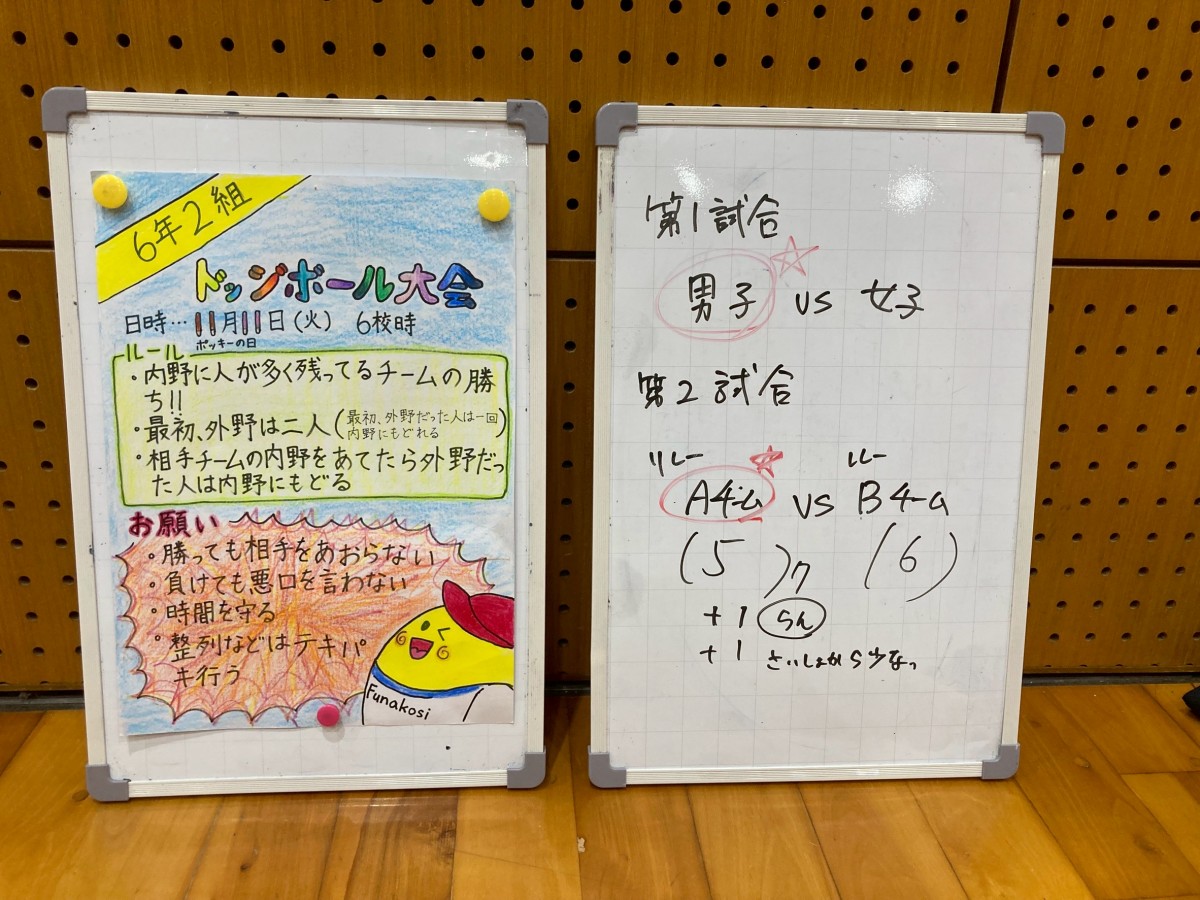 6年2組
ドッジボール大会
日時…11月11日(火) 6校時
ポッキーの日
ルール
・内野に人が多く残ってるチームの勝
ち!!
・最初、外野は二人(最初、外野だった人は一回
内野にもどれる)
・相手チームの内野をあてたら外野だっ
た人は内野にもどる
お願い
・勝っても相手をあおらない
・負けても悪口を言わない
・時間を守る
・整列などはテキパ
キ行う
Funakosi
第1試合
男子 vs 女子
第2試合
Aチーム vs Bチーム
(5) (6)
+1
+1 さいしょから少なっ